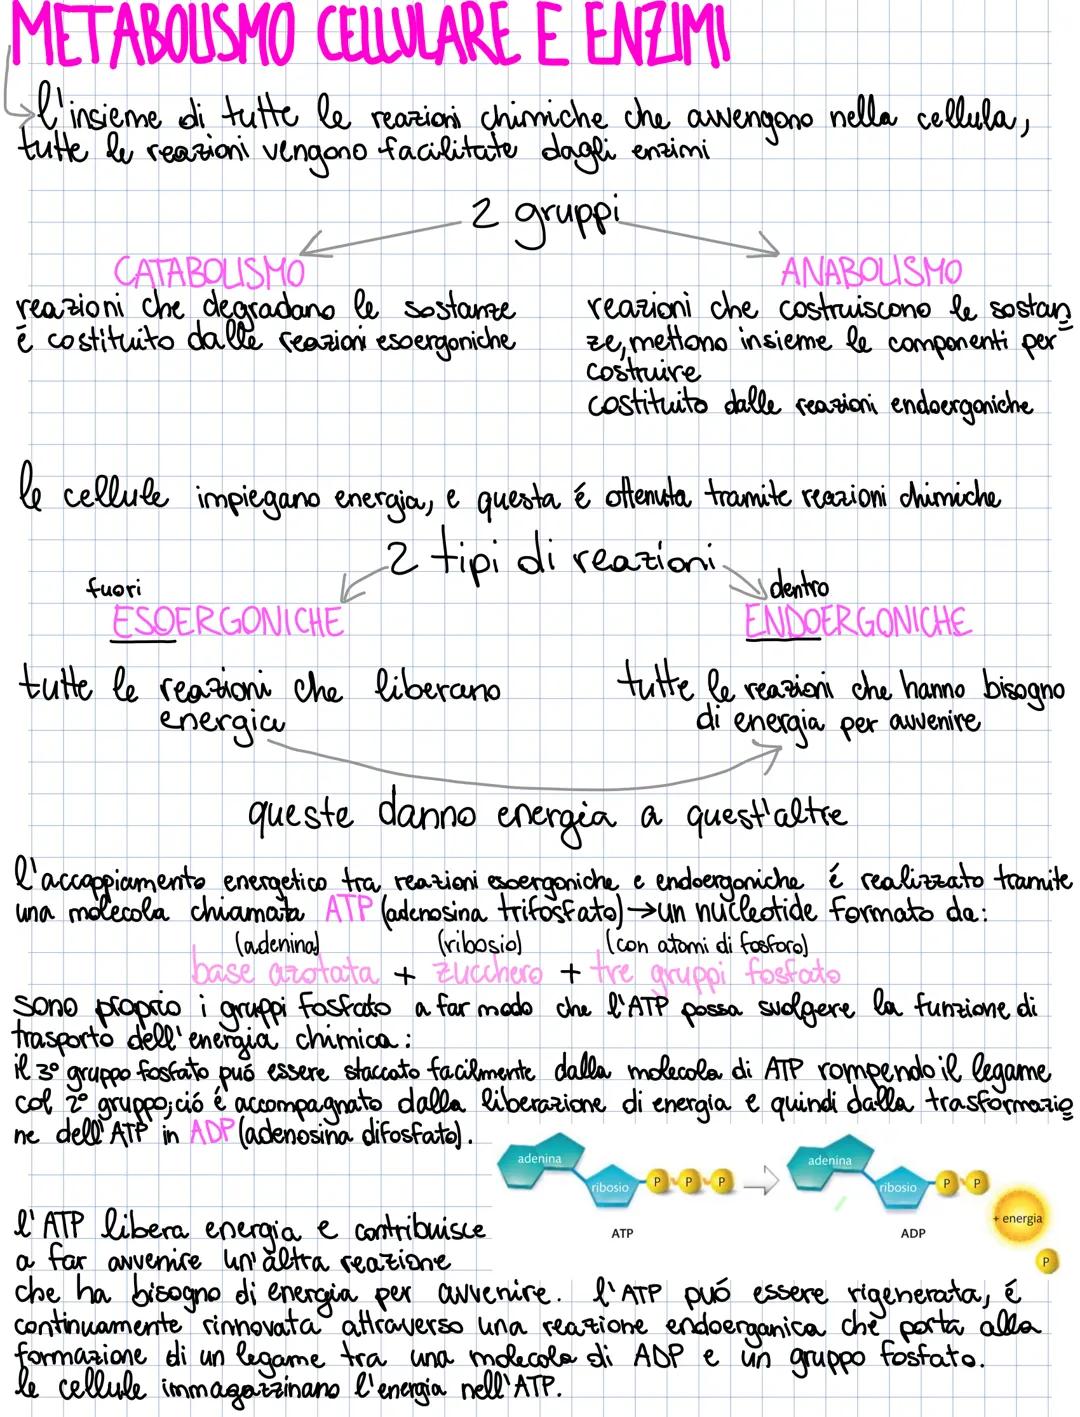 METABOLISMO CELLULARE E ENZIMI
l'insieme di tutte le reazioni chimiche che avvengono nella cellula,
tutte le reazioni vengono facilitate dagli enzimi
2 gruppi
CATABOLISMO
reazioni che degradano le sostanze
é costituito dalle reazioni esoergoniche
ANABOLISMO
reazioni che costruiscono le sostan
ze, mettono insieme le componenti per
costruire
costituito dalle reazioni endoergoniche
le cellule impiegano energia, e questa é ottenuta tramite reazioni chimiche
2 tipi di reazioni
fuori
ESOERGONICHE
tutte le reazioni che liberano
energia
dentro
ENDOERGONICHE
tutte le reazioni che hanno bisogno
di energia per avvenire
queste danno energia a quest'altre
l'accoppiamento energetico tra reazioni esoergoniche e endoergoniche é realizzato tramite
una molecola chiamata ATP (adenosina trifosfato) → un nucleotide formato da:
(adenina) (ribosio) (con atomi di fosforo)
base azotata + zucchero + tre gruppi fosfato
sono proprio i gruppi fosfato a far modo che l'ATP possa svolgere la funzione di
trasporto dell'energia chimica:
il 3° gruppo fosfato puó essere staccato facilmente dalla molecola di ATP rompendo il legame
col 2° gruppo; ció é accompagnato dalla liberazione di energia e quindi dalla trasformazio
ne dell'ATP in ADP (adenosina difosfato).
adenina
ribosio P P P
ATP
adenina
ribosio P P
ADP
+ energia
P
l'ATP libera energia e contribuisce
a far avvenire un'altra reazione
che ha bisogno di energia per avvenire. l'ATP puó essere rigenerata, é
continuamente rinnovata attraverso una reazione endoerganica che porta alla
formazione di un legame tra una molecola di ADP e un gruppo fosfato.
le cellule immagazzinano l'energia nell'ATP.